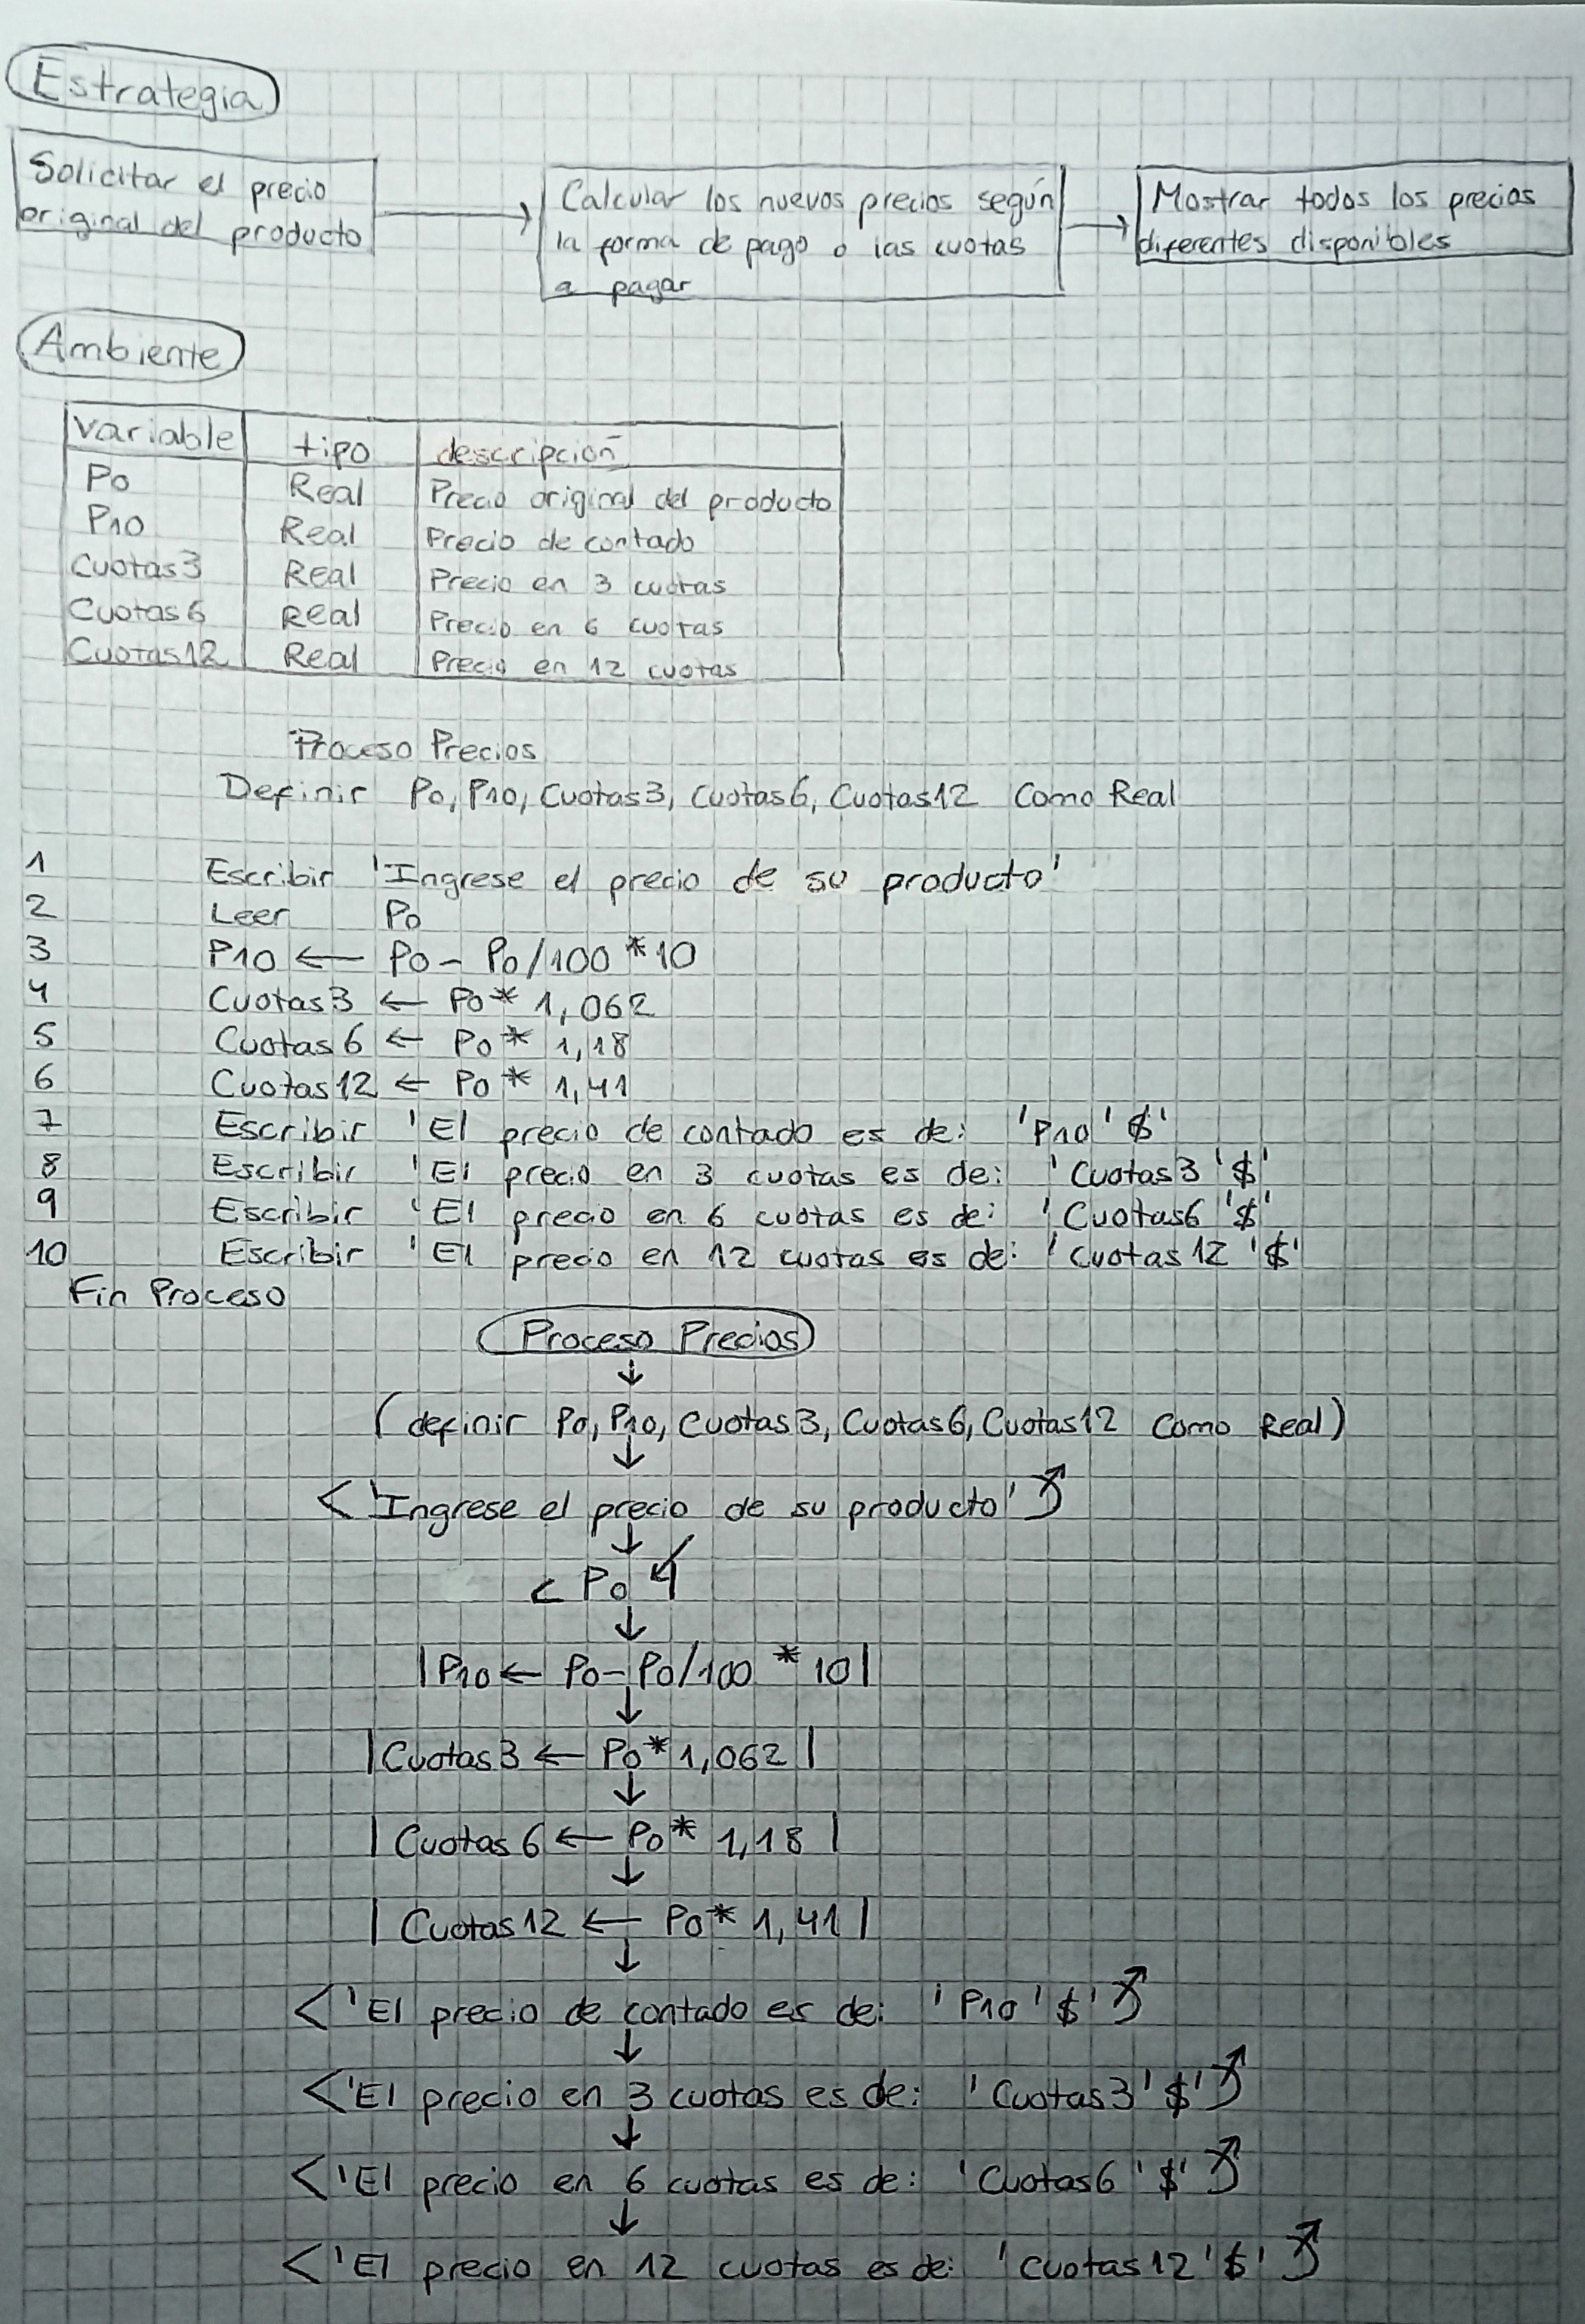 Estrategia
Solicitar el precio
original del producto
Calcular los nuevos precios según
la forma de pago o las cuotas
a pagar
Mostrar todos los precios
diferentes disponibles
Ambiente
Variable tipo descripción
Po Real Precio original del producto
P10 Real Precio de contado
Cuotas3 Real Precio en 3 cuotas
Cuotas6 Real Precio en 6 cuotas
Cuotas12 Real Precio en 12 cuotas
Proceso Precios
Definir Po, P10, Cuotas3, Cuotas6, Cuotas12 Como Real
1 Escribir 'Ingrese el precio de su producto'
2 Leer Po
3 P10 ← Po - Po/100 * 10
4 Cuotas3 ← Po * 1,062
5 Cuotas6 ← Po * 1,18
6 Cuotas12 ← Po * 1,41
7 Escribir 'El precio de contado es de: 'P10' $'
8 Escribir 'El precio en 3 cuotas es de: 'Cuotas3 '$'
9 Escribir 'El precio en 6 cuotas es de: 'Cuotas6 '$'
10 Escribir 'El precio en 12 cuotas es de: 'Cuotas12 '$'
Fin Proceso
Proceso Precios
(definir Po, P10, Cuotas3, Cuotas6, Cuotas12 Como Real)
'Ingrese el precio de su producto'
Po
P10 ← Po - Po/100 * 10
Cuotas3 ← Po * 1,062
Cuotas6 ← Po * 1,18
Cuotas12 ← Po * 1,41
'El precio de contado es de: 'P10' $'
'El precio en 3 cuotas es de: 'Cuotas3' $'
'El precio en 6 cuotas es de: 'Cuotas6 '$'
'El precio en 12 cuotas es de: 'Cuotas12 '$'